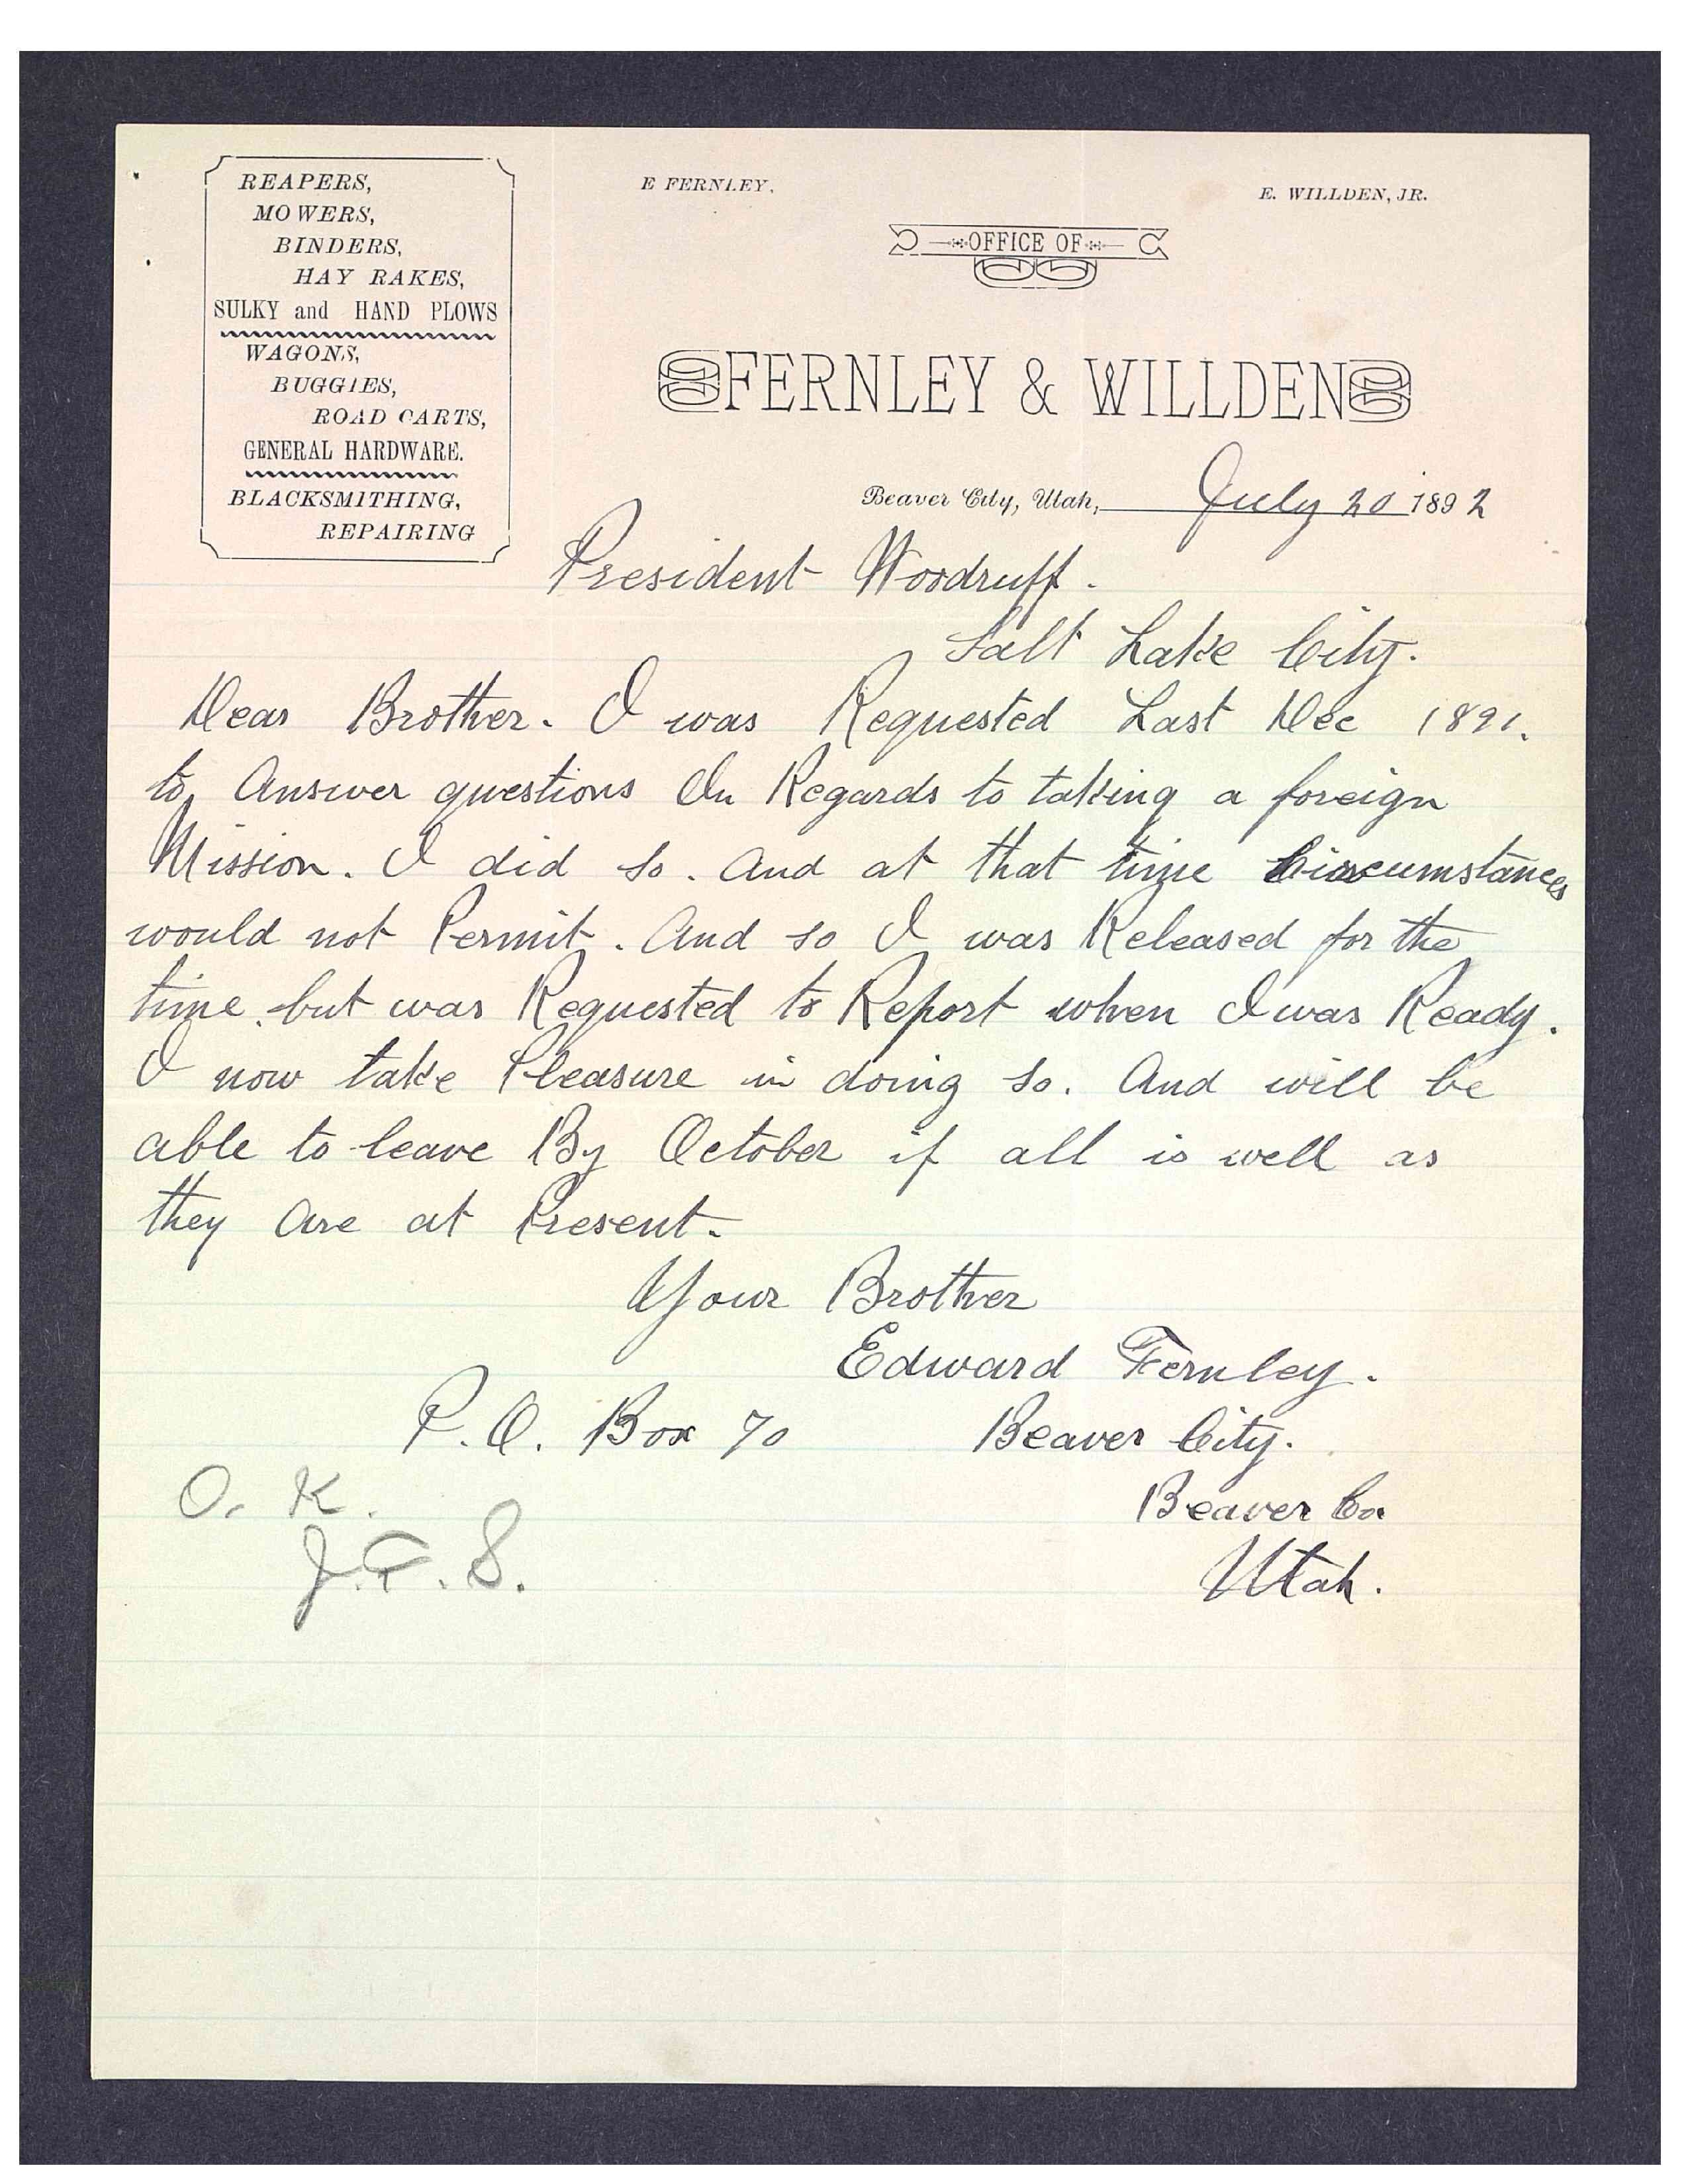 REAPERS,
MOWERS,
BINDERS,
HAY RAKES,
SULKY and HAND PLOWS
WAGONS,
BUGGIES,
ROAD CARTS,
GENERAL HARDWARE.
BLACKSMITHING,
REPAIRING
E FERNLEY.
E. WILLDEN, JR.
OFFICE OF
FERNLEY & WILLDEN
Beaver City, Utah, July 20 1892
President Woodruff.
Salt Lake City.
Dear Brother. I was Requested Last Dec 1891.
to Answer questions In Regards to taking a foreign
Mission. I did so. And at that time Circumstances
would not Permit. And so I was Released for the
time. but was Requested to Report when I was Ready.
I now take Pleasure in doing so. And will be
able to leave By October if all is well as
they Are at Present.
Your Brother
Edward Fernley.
P.O. Box 70 Beaver City.
Beaver Co
Utah.
O. K.
J.F.S.